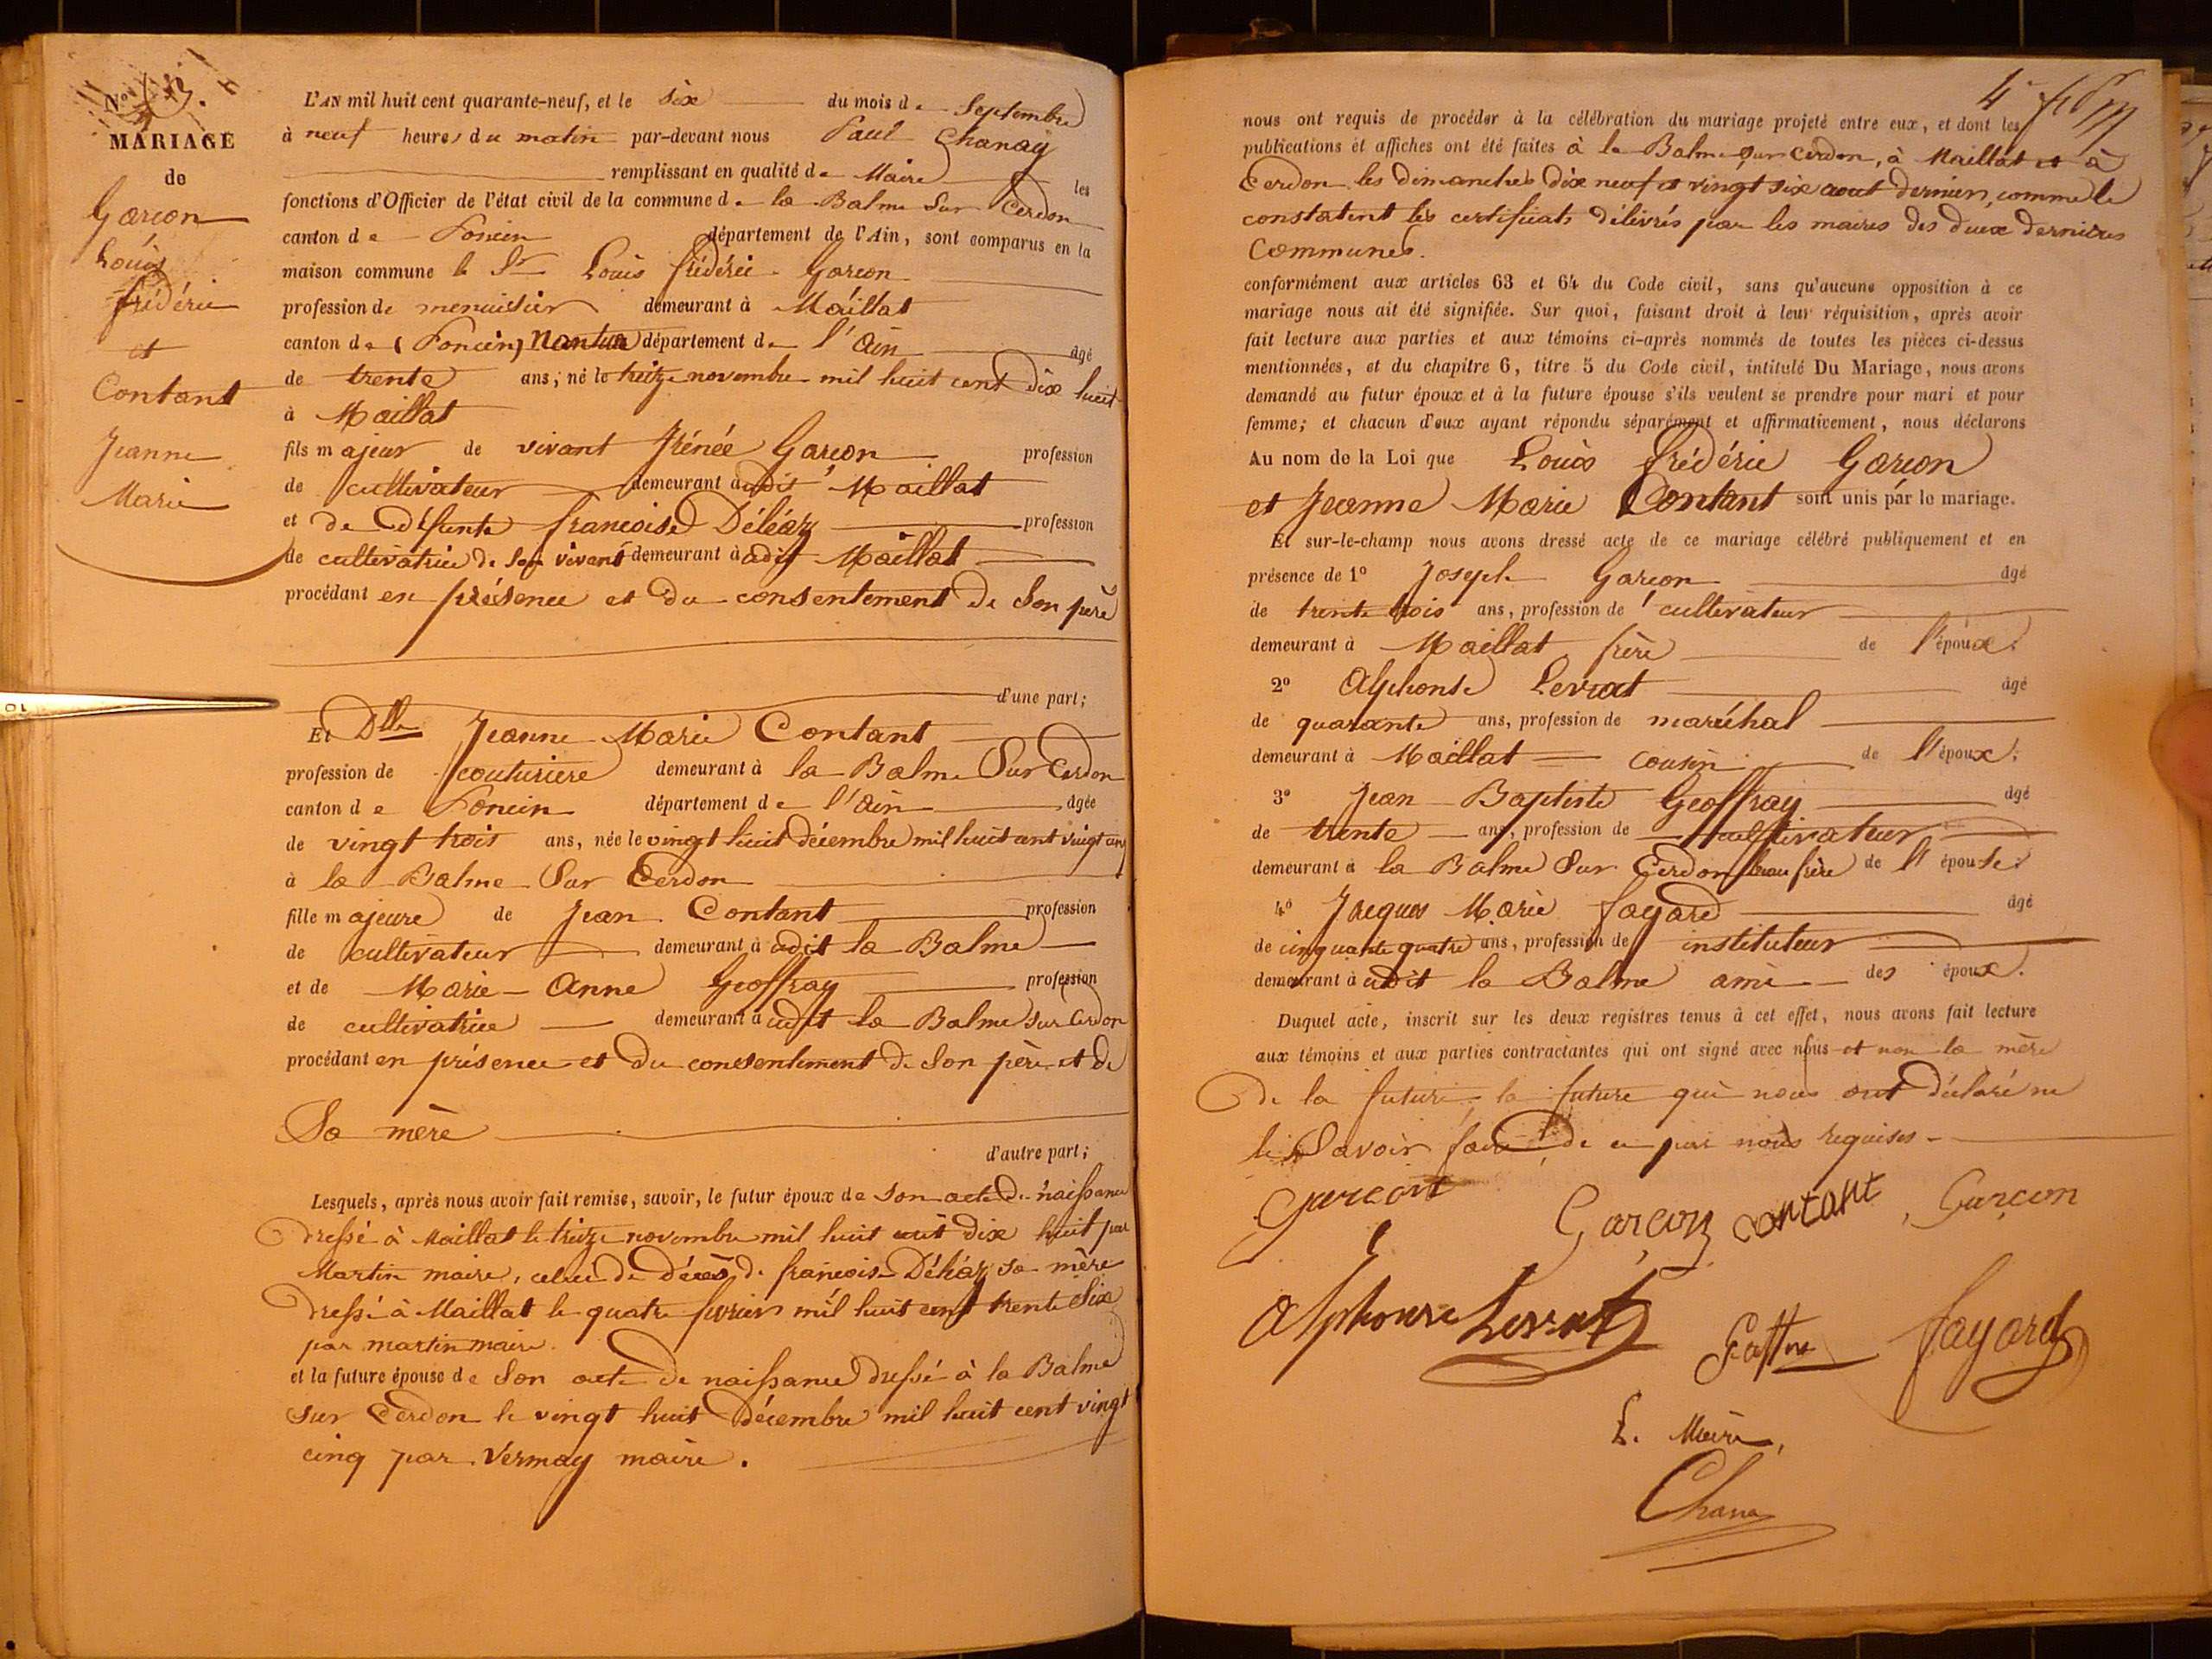 MARIAGE
de
Garcon
Louis
frédéric
et
Contant
Jeanne
Marie
L'AN mil huit cent quarante-neuf, et le six du mois de Septembre
à neuf heures du matin par-devant nous Paul Chanay
remplissant en qualité de Maire les
fonctions d'Officier de l'état civil de la commune de la Balme Sur Cerdon
canton de Poncin département de l'Ain, sont comparus en la
maison commune le Sr Louis frédéric Garcon
profession de menuisier demeurant à Maillat
canton de (Poncin) Nantua département de l'Ain âgé
de trente ans, né le treize novembre mil huit cent dix huit
à Maillat
fils majeur de vivant Irénée Garcon profession
de cultivateur demeurant audit Maillat
et de défunte francoise Déléaz profession
de cultivatrice de son vivant demeurant à adit Maillat
procédant en présence et du consentement de Son père
d'une part;
Et Dlle Jeanne Marie Contant
profession de couturiere demeurant à la Balme Sur Cerdon
canton de Poncin département de l'Ain âgée
de vingt trois ans, née le vingt huit décembre mil huit cent vingt cinq
à la Balme Sur Cerdon
fille majeure de Jean Contant profession
de cultivateur demeurant à udit la Balme
et de Marie Anne Geoffray profession
de cultivatrice demeurant à udit la Balme sur Cerdon
procédant en présence et du consentement de Son père et de
Sa mère
d'autre part;
Lesquels, après nous avoir fait remise, savoir, le futur époux de Son acte de naissance
dressé à Maillat le treize novembre mil huit cent dix huit par
Martin maire, celui de décès de francoise Déléaz sa mère
dressé à Maillat le quatre fevrier mil huit cent trente Six
par martin maire.
et la future épouse de Son acte de naissance dressé à la Balme
sur Cerdon le vingt huit décembre mil huit cent vingt
cinq par Vermay maire.
nous ont requis de procéder à la célébration du mariage projeté entre eux, et dont les
publications et affiches ont été faites à la Balme sur Cerdon, à Maillat et à
Cerdon les dimanches dix neuf et vingt six aout dernier, comme le
constatent les certificats délivrés par les maires des deux dernieres
Communes.
conformément aux articles 63 et 64 du Code civil, sans qu'aucune opposition à ce
mariage nous ait été signifiée. Sur quoi, faisant droit à leur réquisition, après avoir
fait lecture aux parties et aux témoins ci-après nommés de toutes les pièces ci-dessus
mentionnées, et du chapitre 6, titre 5 du Code civil, intitulé Du Mariage, nous avons
demandé au futur époux et à la future épouse s'ils veulent se prendre pour mari et pour
femme; et chacun d'eux ayant répondu séparément et affirmativement, nous déclarons
Au nom de la Loi que Louis frédéric Garcon
et Jeanne Marie Contant sont unis par le mariage.
Et sur-le-champ nous avons dressé acte de ce mariage célébré publiquement et en
présence de 1° Joseph Garcon âgé
de trente trois ans, profession de cultivateur
demeurant à Maillat frère de l'époux.
2° Alphonse Levrat âgé
de quarante ans, profession de maréchal
demeurant à Maillat cousin de l'époux.
3° Jean Baptiste Geoffray âgé
de trente ans, profession de cultivateur
demeurant à la Balme Sur Cerdon beau frère de l'épouse.
4° Jacques Marie fayard âgé
de cinquante quatre ans, profession de instituteur
demeurant à udit la Balme ami des époux.
Duquel acte, inscrit sur les deux registres tenus à cet effet, nous avons fait lecture
aux témoins et aux parties contractantes qui ont signé avec nous et non la mère
de la future, la future qui nous ont déclaré ne
le Savoir faire de ce par nous requises
Garcon
Garcon contant Garcon
Alphonse Levrat
fayard
Le Maire,
Chanay